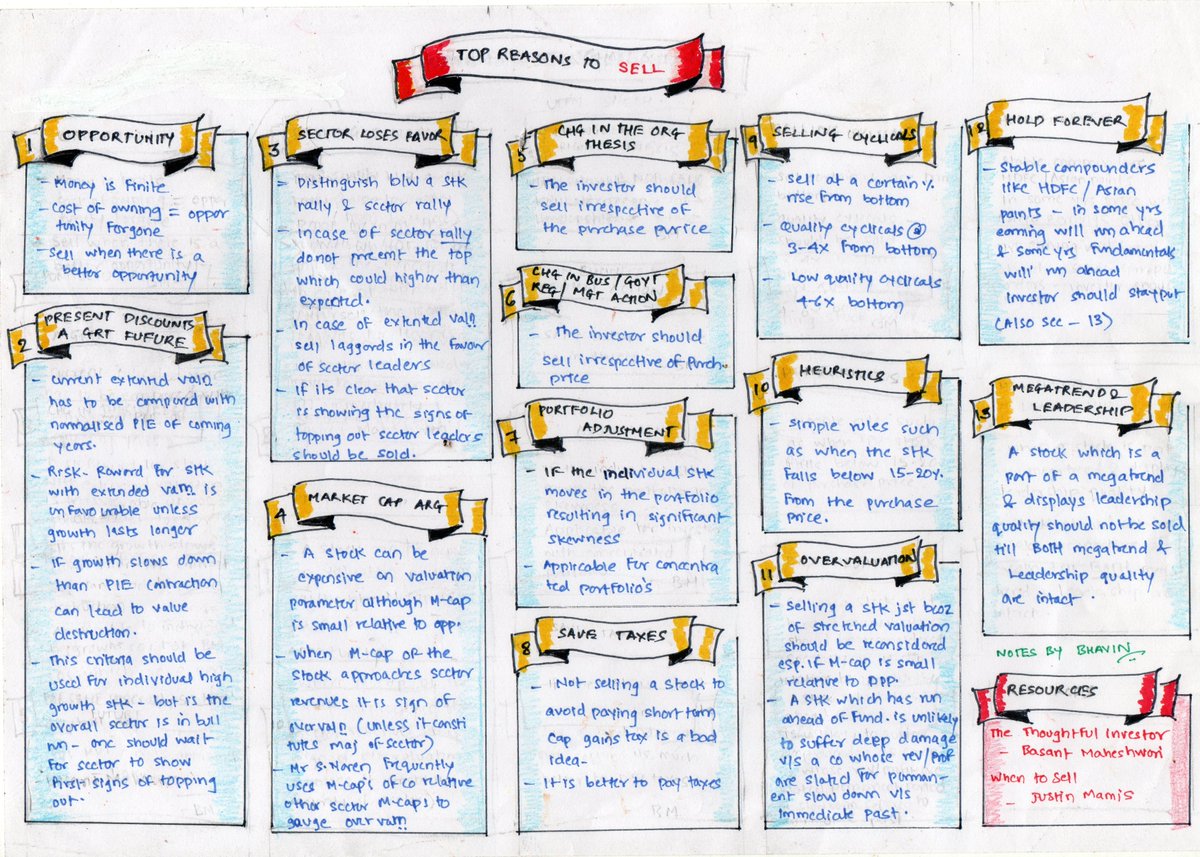 TOP REASONS to SELL
1 OPPORTUNITY
- Money is Finite
- Cost of owning = oppor
tunity Forgone
- Sell when there is a
better opportunity
2 PRESENT DISCOUNTS
A GRT FUFURE
- Current extented valn
has to be compured with
normalised P/E of coming
years.
- Risk-Reward for stk
with extended valn is
unfavourable unless
growth lasts longer
- IF growth slows down
than P/E contraction
can lead to value
destruction.
- This criteria should be
used for individual high
growth stk - but is the
overall sector is in bull
run - one should wait
for sector to show
first signs of topping
out.
3 SECTOR LOSES FAVOR
= Distinguish b/w a stk
rally & sector rally
- in case of sector rally
do not preemt the top
which could higher than
expected.
- In case of extented valn
sell laggords in the favour
of sector leaders
- If its clear that sector
is showing the signs of
topping out sector leaders
should be sold.
4 MARKET CAP ARG
- A stock can be
expensive on valuation
parameter although M-cap
is small relative to opp.
- When M-cap of the
stock approaches sector
revenues it is sign of
overvaln (unless it consti
tutes maj of sector)
- Mr S. Naren Frequently
uses M-caps of co relative
other sector M-caps to
gauge overvaln
5 CHG IN THE ORG
THESIS
- The investor should
sell irrespective of
the purchase purice
6 CHG IN BUS/GOVT
REG/MGT ACTION
- The investor should
sell irrespective of Purch.
price
7 PORTFOLIO
ADJUSTMENT
- IF the individual stk
moves in the portfolio
resulting in significant
skewness
- Applicable for concentra
ted portfolio's
8 SAVE TAXES
- Not selling a stock to
avoid paying short term
cap gains tax is a bad
idea-
- It is better to pay taxes
9 SELLING CYCLICALS
- sell at a certain %
rise from bottom
- Quality cyclicals @
3-4x from bottom
- Low quality cyclicals
4-6x bottom
10 HEURISTICS
- simple rules such
as when the stk
falls below 15-20%
from the purchase
price.
11 OVERVALUATION
- selling a stk jst bcoz
of stretched valuation
should be reconsidered
esp. if M-cap is small
relative to opp.
- A stk which has run
ahead of fund. is unlikely
to suffer deep damage
v/s a co whose rev/prof
are slated for perman-
ent slow down v/s
immediate past.
12 HOLD FOREVER
- Stable compounders
like HDFC/Asian
paints - in some yrs
earning will run ahead
& some yrs Fundamentals
will run ahead
Investor should stay put
(Also see - 13)
13 MEGATREND &
LEADERSHIP
A stock which is a
part of a megatrend
& displays leadership
quality should not be sold
till BOTH megatrend &
Leadership quality
are intact.
NOTES BY BHAVIN
RESOURCIES
The Thoughtful Investor
- Basant Maheshwari
When to Sell
- Justin Mamis